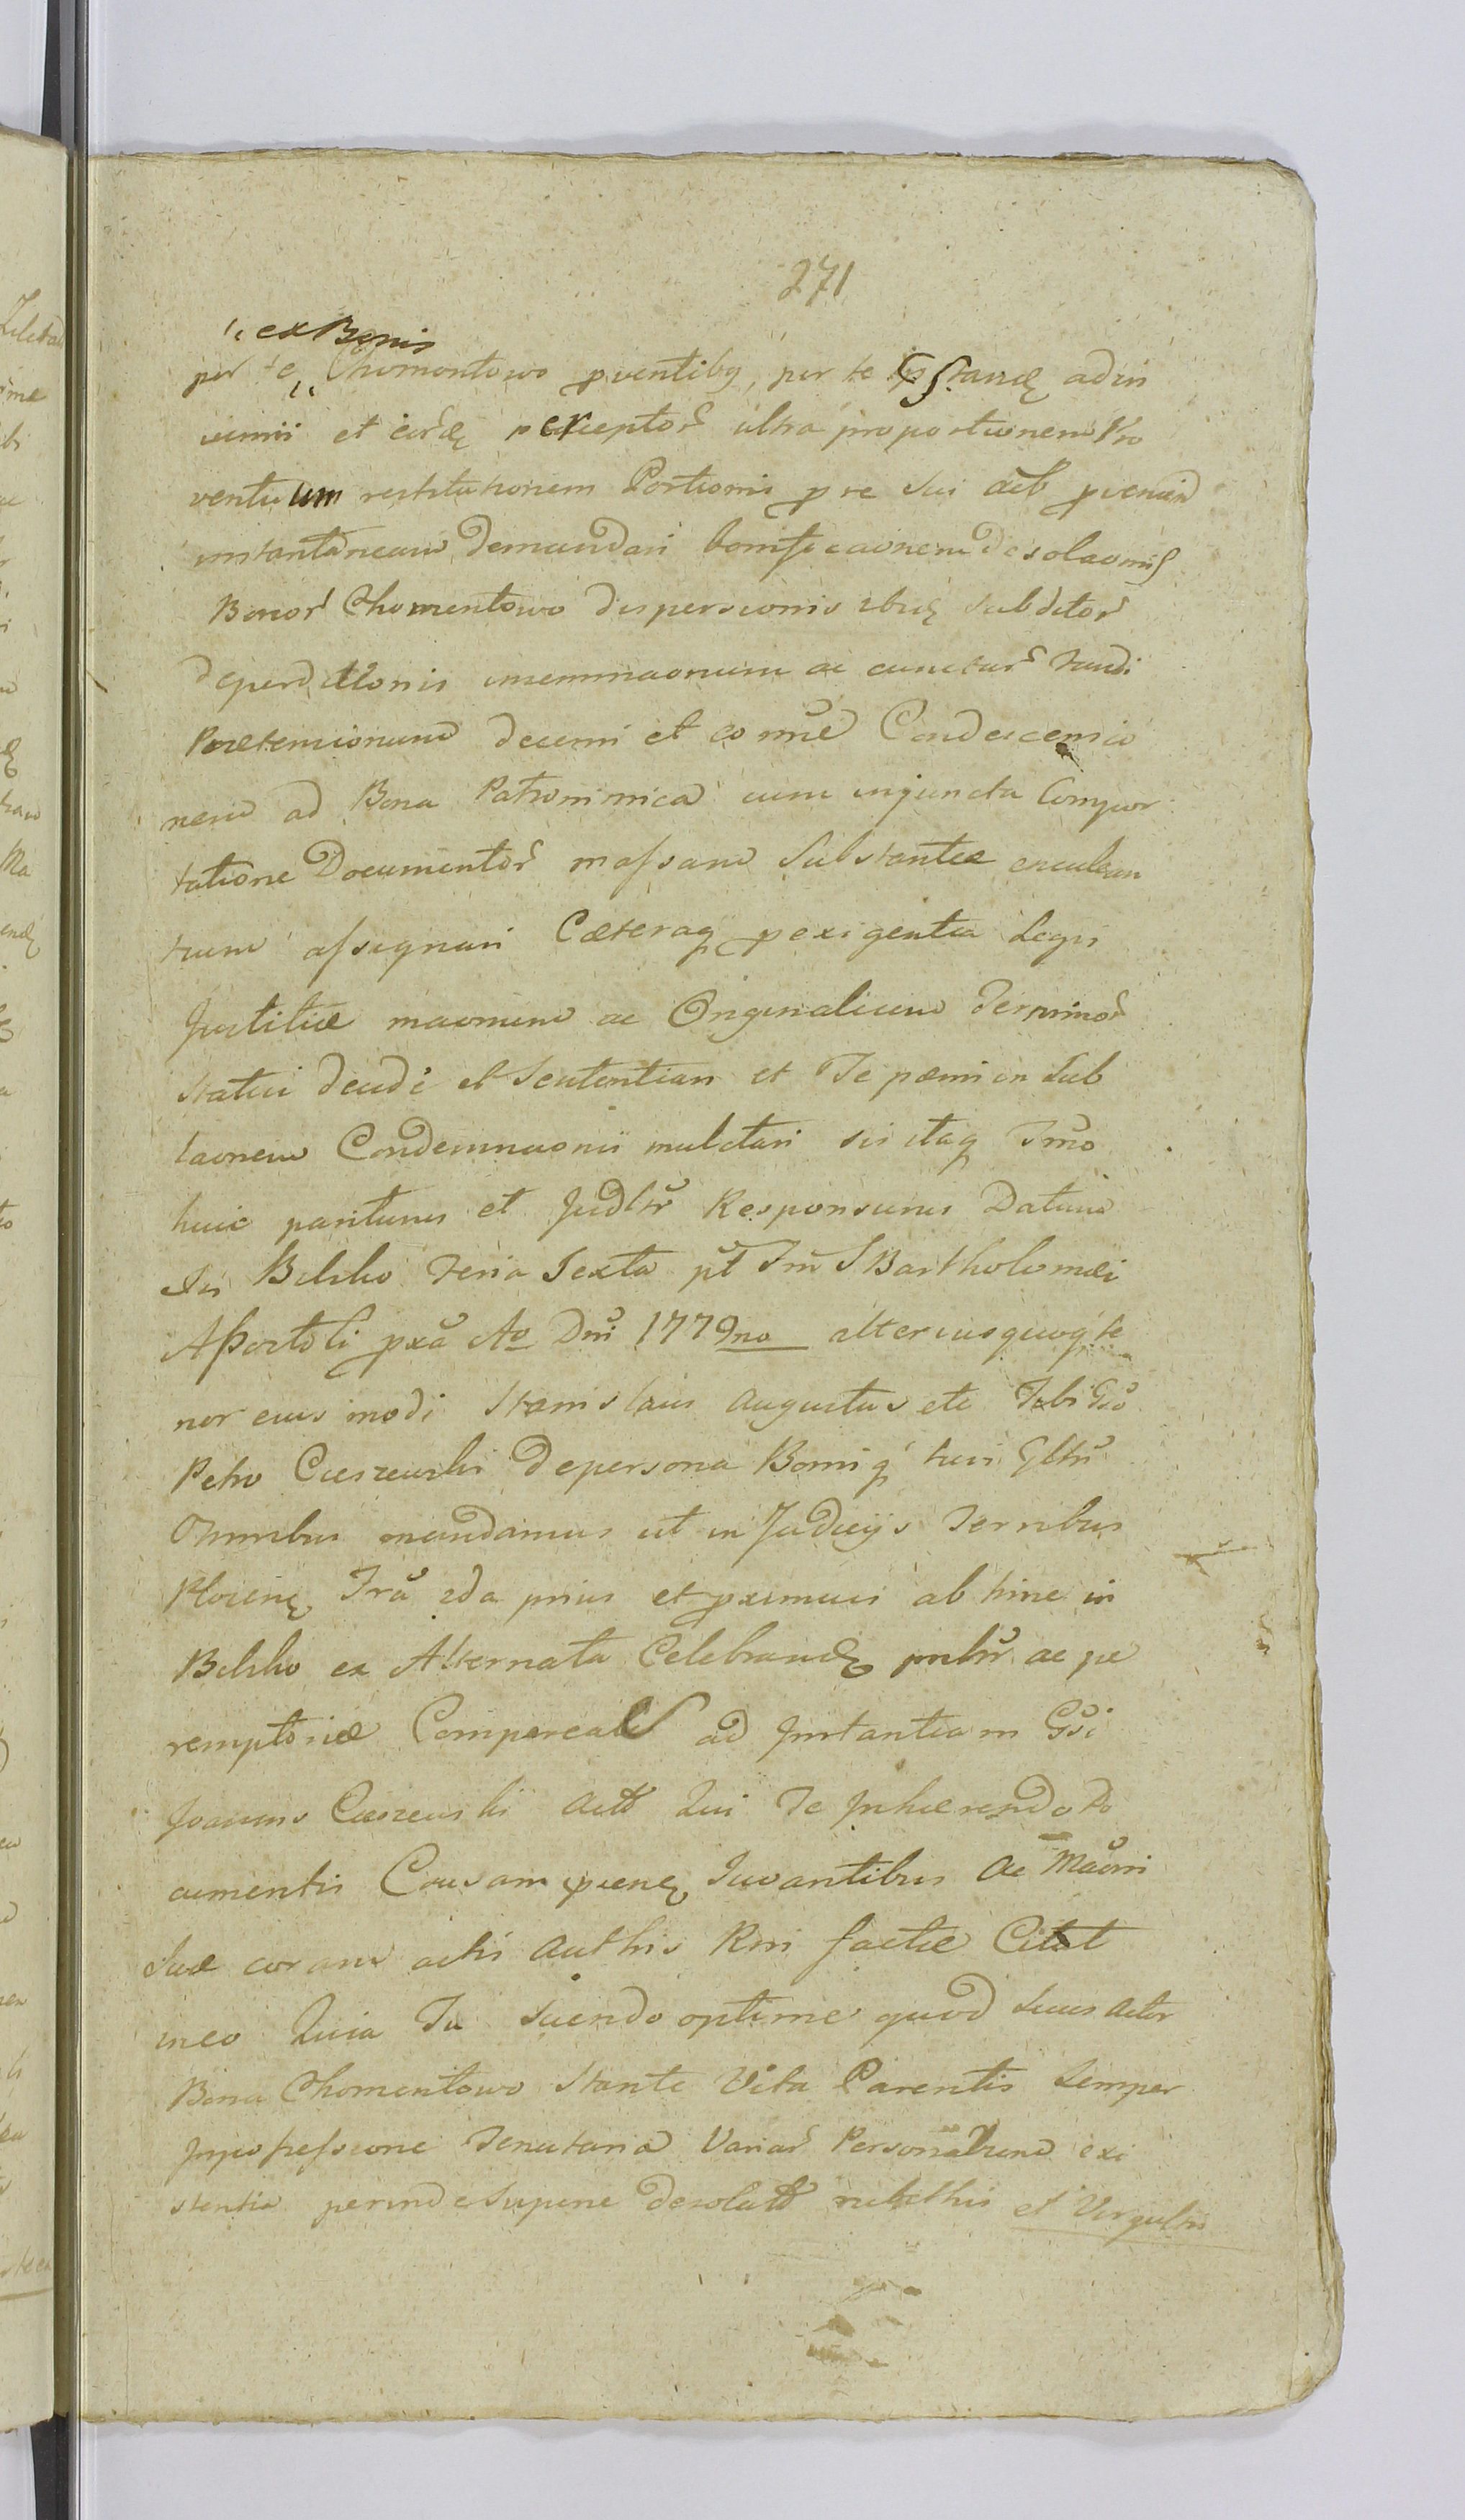 271
ex Bonis
per te, Chomontowo pventibq, per te adin
et perceptor ultra proportionem Pro
ventuum restitutionem Portionis p re sui
instantaneam Demandari bonificaonem desolaonis
Bonor Chomentowo dispersionis subditor
deperditionis inseminaonum ac
Praetensionum decerni et Condescensio
nem ad Bona Patrimonica cum injuncta Compor
tatione Documentor massam Substantiae
tum assignari Caeteraq p exigentia Legis
Justitiae ac Originalium Terminor
Statui et Sententiari et Te paenis in Sub
laonem Condemnaonis mulctari sis itaq Tmo
huic pariturus et Judltr Responsurus Datum
In Bielsko Feria Sexta pt Fm S Bartholomaei
Apostoli pxa Ao Dni 1779no alterius quoq te
nor eius modi Stanislaus Augustus etc Tibi Gso
Petro Cieszewski De persona Bonisq tuis Gltr
Omnibus mandamus ut in Judicijs Terribus
Plocens Tra 2da prius et pximius ab hinc in
Bielsko ex Alternata Celebrand pnltr ac pe
remptorie Compareas ad Instantiam Gsi
Joannis Cieszewski Act Qui Te Inhaerendo Do
cumentis Causam Juvantibus Ac Maoni
Suae coram actis Authis Rni factae Citat
in eo Quia Tu Sciendo optime quod Suus Actor
Bona Chomentowo Stante Vita Parentis Semper
In possessione Tenutaria Variar Personarum exi
stentia perinde Supine desolat rubethis et Virgultis